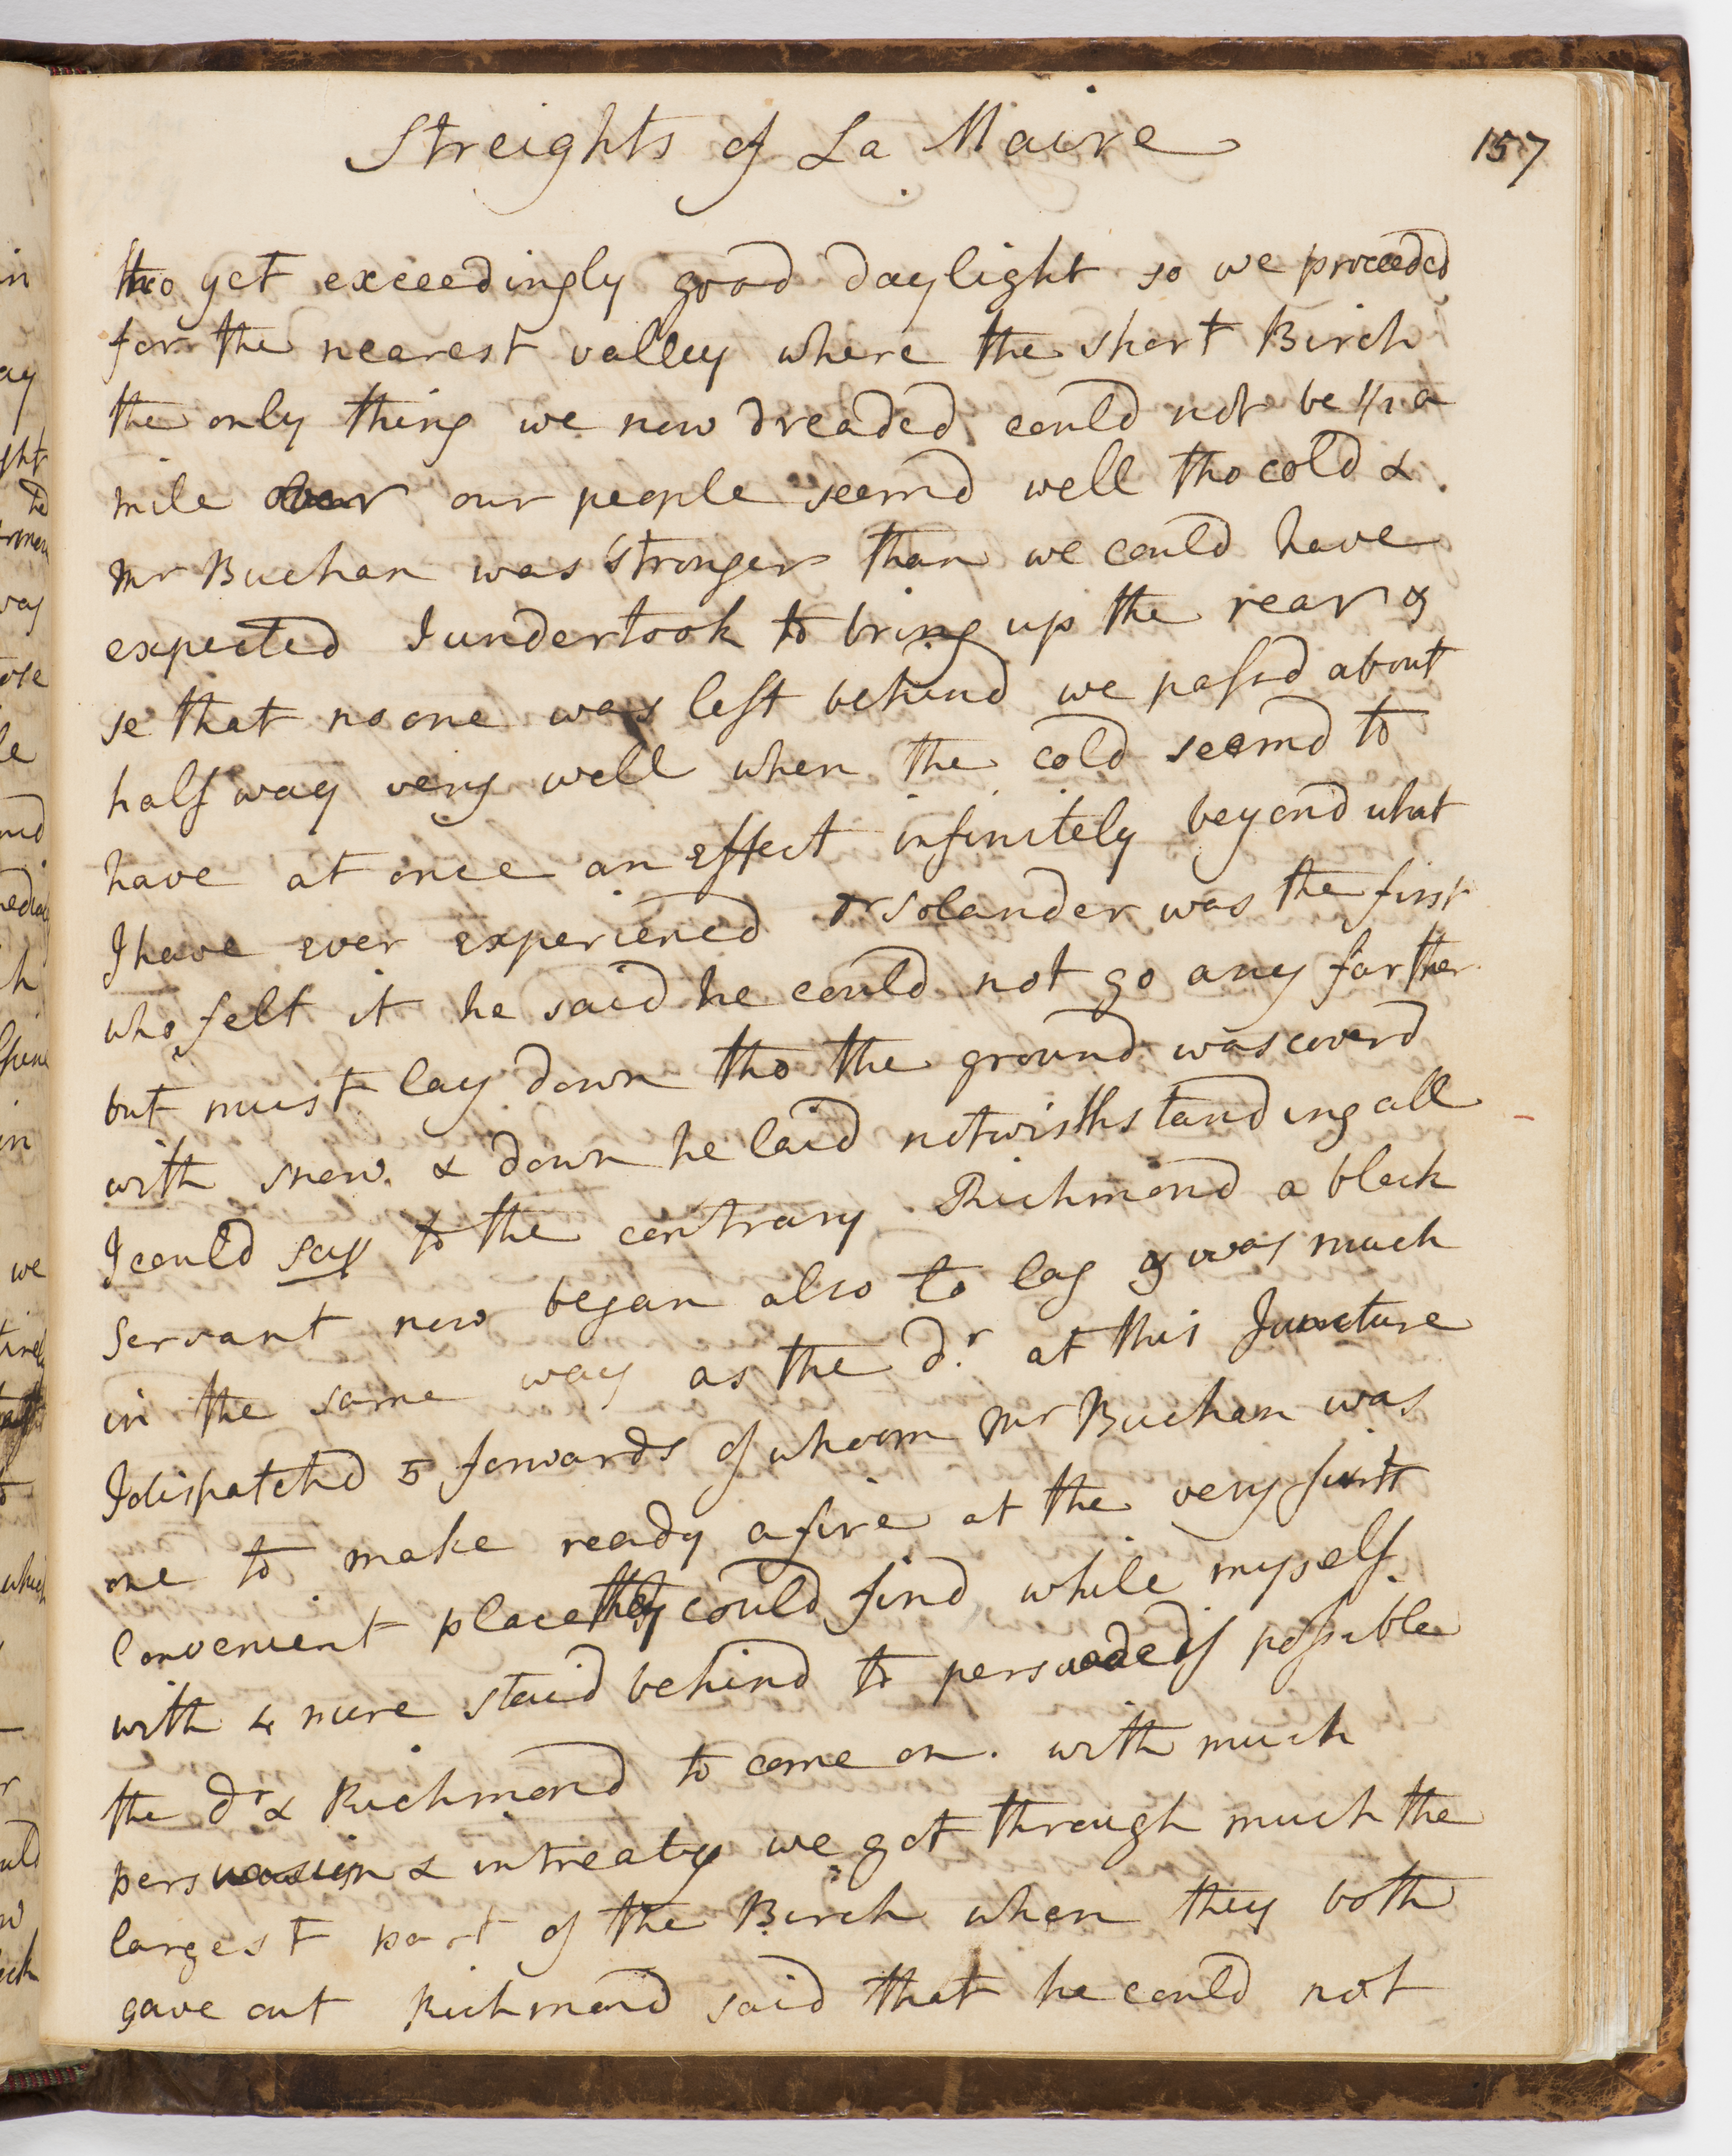 Streights of La Maire
157
tho yet exceedingly good daylight so we proceeded
for the nearest valley where the short Birch
the only thing we now dreaded could not be 1/2 a
mile over our people seemd well tho cold &
Mr Buchan was stronger than we could have
expected I undertook to bring up the rear &
se that no one was left behind we passd about
half way very well when the cold seemd to
have at once an effect infinitely beyond what
I have ever experienced Dr Solander was the first
who felt it he said he could not go any farther
but must lay down tho the ground was coverd
with snow & down he laid notwisthstanding all
I could say to the contrary Richmond a black
Servant now began also to lag & was much
in the same way as the dr. at this Juncture
I dispatchd 5 forwards of whoom Mr Buchan was
one to make ready a fire at the very first
convenient place they could find while myself
with 4 more staid behind to perswade if possible
the dr & Richmond to come on. with much
perswasion & intreaty we got through much the
largest part of the Birch when they both
gave out Richmond said that he could not